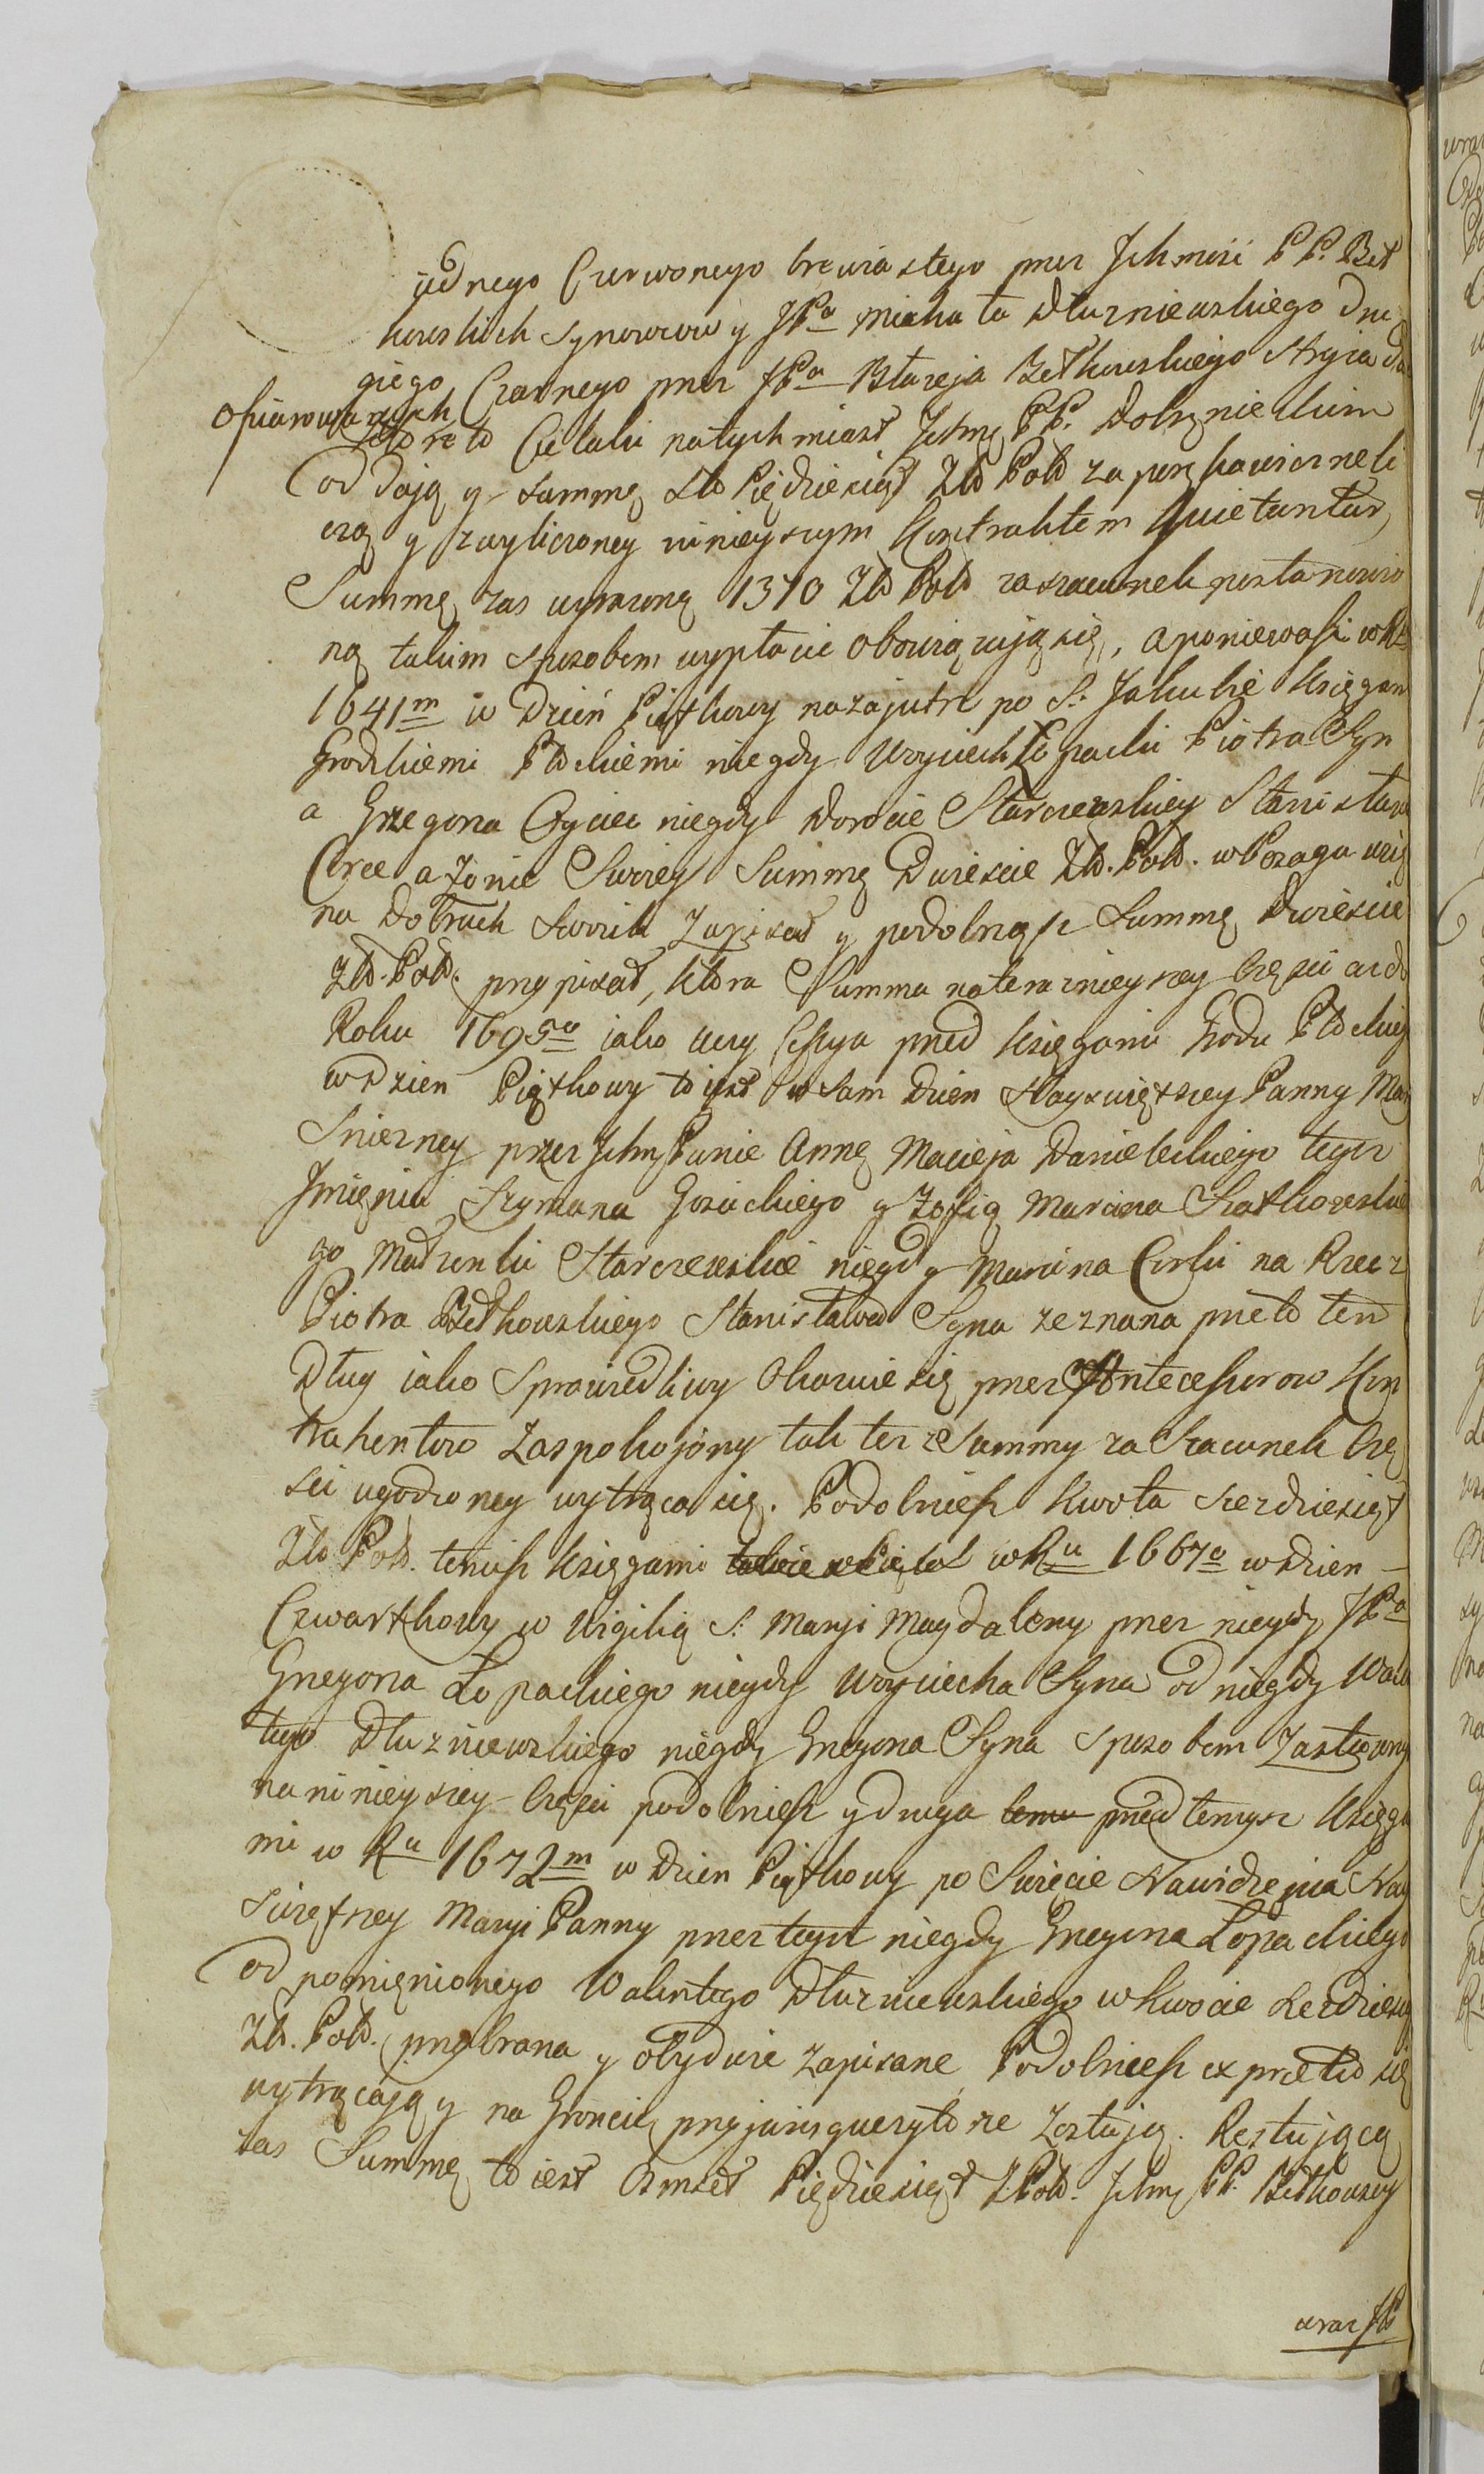 jednego Czerwonego brewiastego przez Ichmość PP. Beł
kowskich Synowcow y JPa Michała Dłuzniewskiego dru
giego Czarnego przez JPa Błazeja Bełkowskiego Stryja
ofiarowanych
ktore to Cielaki natychmiast Ichmę PP. Dobrznieckim
oddają y Summę sto Piędziesiąt Złt Polt za porękawiczneli
czą y zwyliczoney ninieyszym Kontraktem Kwietantur,
Summę zas wyrazoną 1370 Złt Polt za szacunek postanowio
ną takim sposobem wypłacić obowiązują się, a poniewasz w Ru
1641m w Dzień Piątkowy nazajutrz po S: Jakubie Księgam
Grodzkiemi Płockiemi niegdy Woyciech Łopacki Piotra Syn
a Grzegorza Oyciec niegdy Dorocie Starczewskiey Stanisława
Corce a Zonie Swoiey Summę Dwiescie Złt. Polt. w Posagu wzię
na Dobrach Swoich Zapisał y podobnąsz Summę Dwiescie
Złt. Polt. przypisał, ktora Summa na terazniejszey Części asz do
Roku 1695o jako uczy Cessya przed Księgami Grodu Płockieg
w Dzien Piątkowy to iest w sam Dzien Nayswiętszey Panny Mar
Snieżney przez Ichm Panie Annę Macieja Danieleckiego tegoż
Imięnia Szymana Gosickiego y Zofią Marcina Szatkowskie
go Małzonki Starczewskie niegdy Marcina Corki na Rzecz
Piotra Bełkowskiego Stanisława Syna zeznana prze to ten
Dług jako Sprawiedliwy Okazuie się przez Antecessorow Kon
trahentow Zaspokojony tak tez z Summy za Szacunek Czę
sci ugodzoney wytrąca się. Podobniesz Kwota Szezdziesiąt
Złt Polt. temisz Księgami w Ru 1667o w Dzien
Czwartkowy w Wigilią S: Maryi Magdaleny przez niegdy JPa
Grzegorza Łopackiego niegdy Woyciecha Syna od niegdy Walen
tego Dłuzniewskiego niegdy Grzegorza Syna Sposobem Zastawny
na ninieyszey Części podobniesz y druga temu przed temysz Księga
mi w Ru 1672m w Dzien Piątkowy po Swięcie Nawidzenia Nay
Swiętszey Maryi Panny przez tegosz niegdy Grzegorza Łopackiego
od pomięnionego Walentego Dłuzniewskiego w Kwocie szezdziesią
Złt. Polt. przybrana y obydwie zapisane Podobniesz ex prze to się
wytrącają y na Groncie przyjaisquerytorze Zostają. Restującą
zas Summę to iest Osmset Piędziesiąt ZPolt. Ichmę PP. Bełkowscy
wraz JP